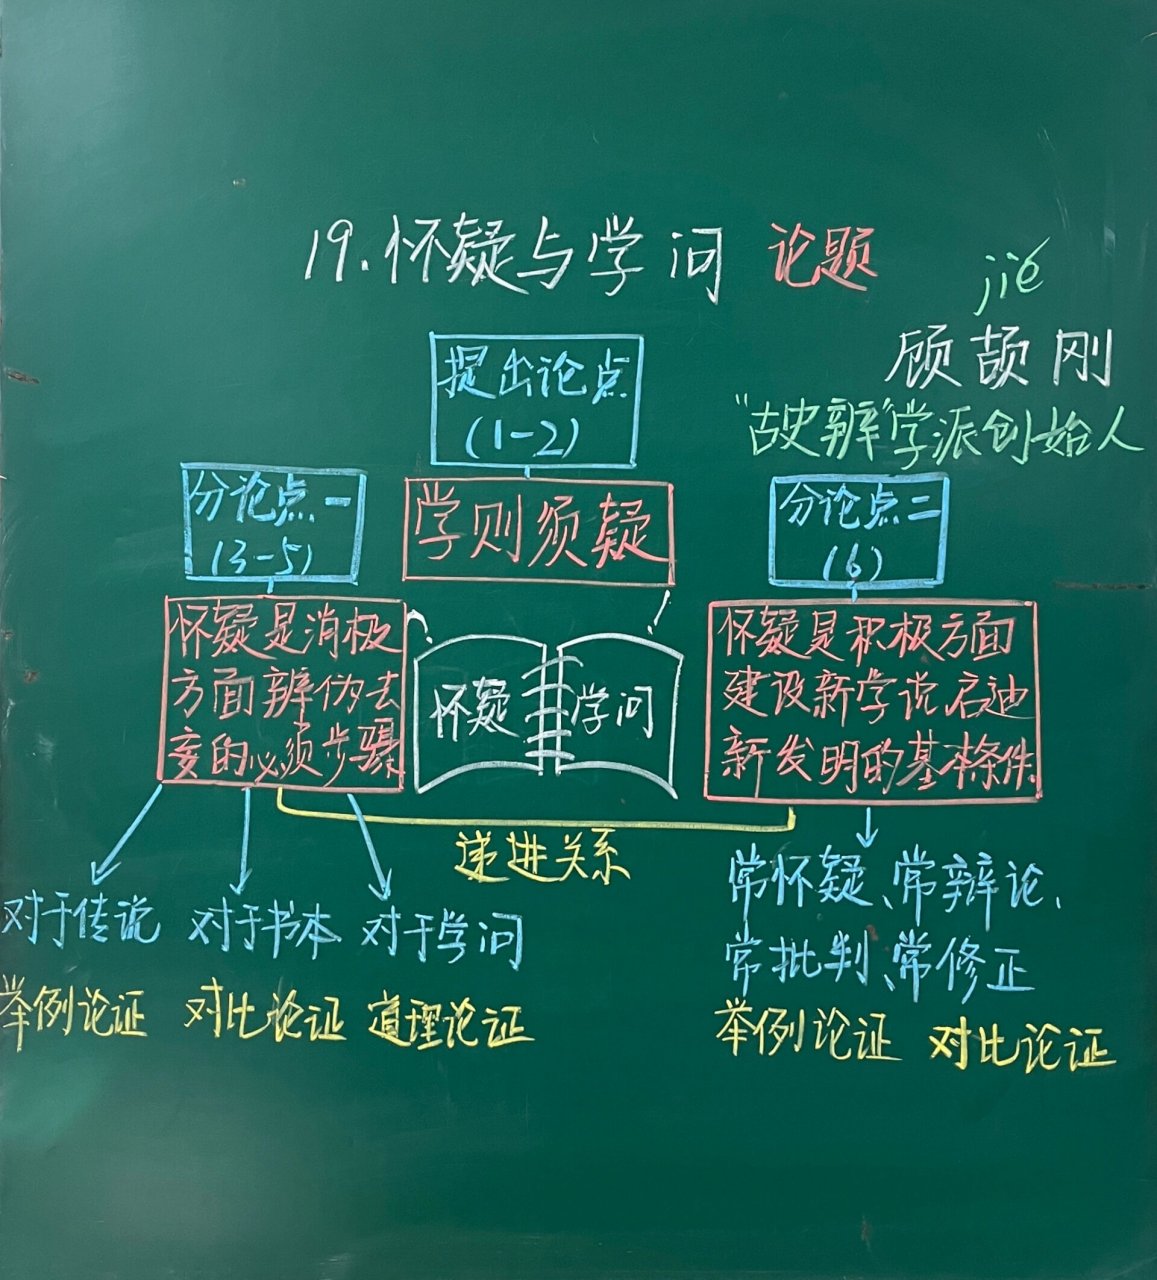 19.怀疑与学问 论题
jié
顾颉刚
"古史辨"学派创始人
提出论点
(1-2)
学则须疑
分论点一
(3-5)
怀疑是消极
方面辨伪去
妄的必须步骤
怀疑 学问
分论点二
(6)
怀疑是积极方面
建设新学说启迪
新发明的基本条件
递进关系
对于传说 对于书本 对于学问
举例论证 对比论证 道理论证
常怀疑、常辩论、
常批判、常修正
举例论证 对比论证